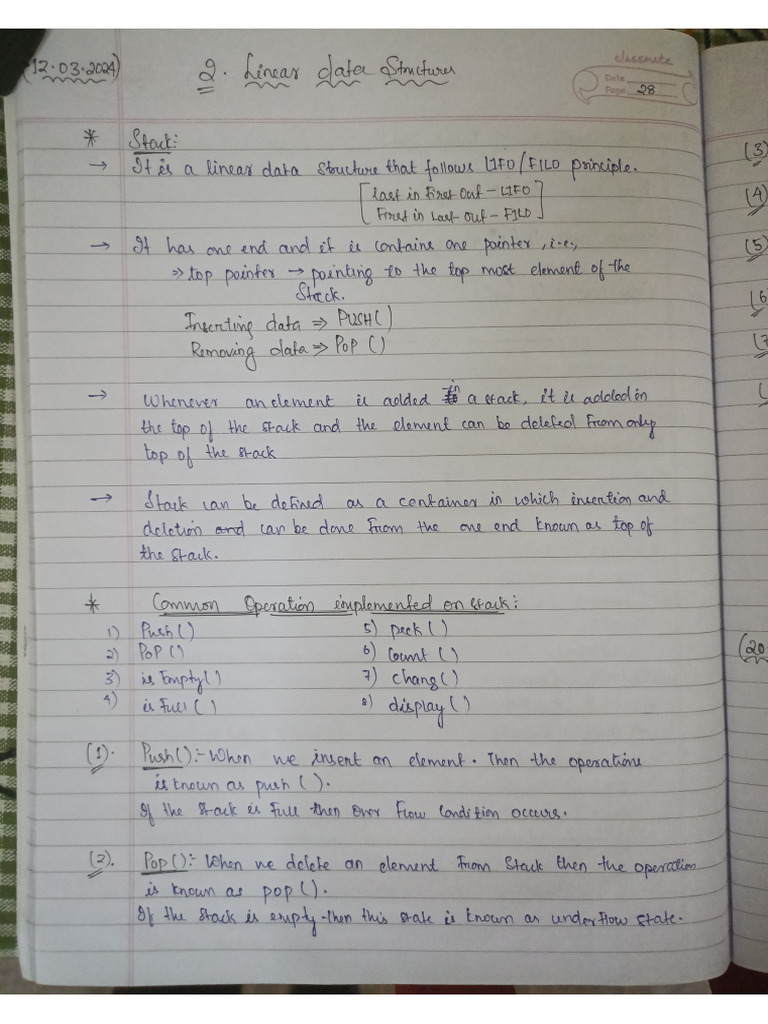 (12.03.2024)
2. Linear data Structures
classmate
Date
Page 28
* Stack:
→ It is a linear data structure that follows LIFO/FILO principle.
[Last in First Out - LIFO
First in Last Out - FILO]
→ It has one end and it is contains one pointer, i.e.,
⇒ top pointer → pointing to the top most element of the
Stack.
Inserting data ⇒ PUSH()
Removing data ⇒ POP ()
→ Whenever an element is added in a stack, it is added in
the top of the stack and the element can be deleted from only
top of the stack
→ Stack can be defined as a container in which insertion and
deletion and can be done from the one end known as top of
the stack.
* Common Operation implemented on stack:
1) Push() 5) peek()
2) POP () 6) Count ()
3) is Empty() 7) chang()
4) is Full () 8) display()
(1). Push():- When we insert an element. Then the operations
is known as push ().
If the stack is full then over flow condition occurs.
(2). Pop():- When we delete an element from stack then the operation
is known as pop().
If the stack is empty then this state is known as underflow state.
(3)
(4)
(5)
(6
(7
(
(20